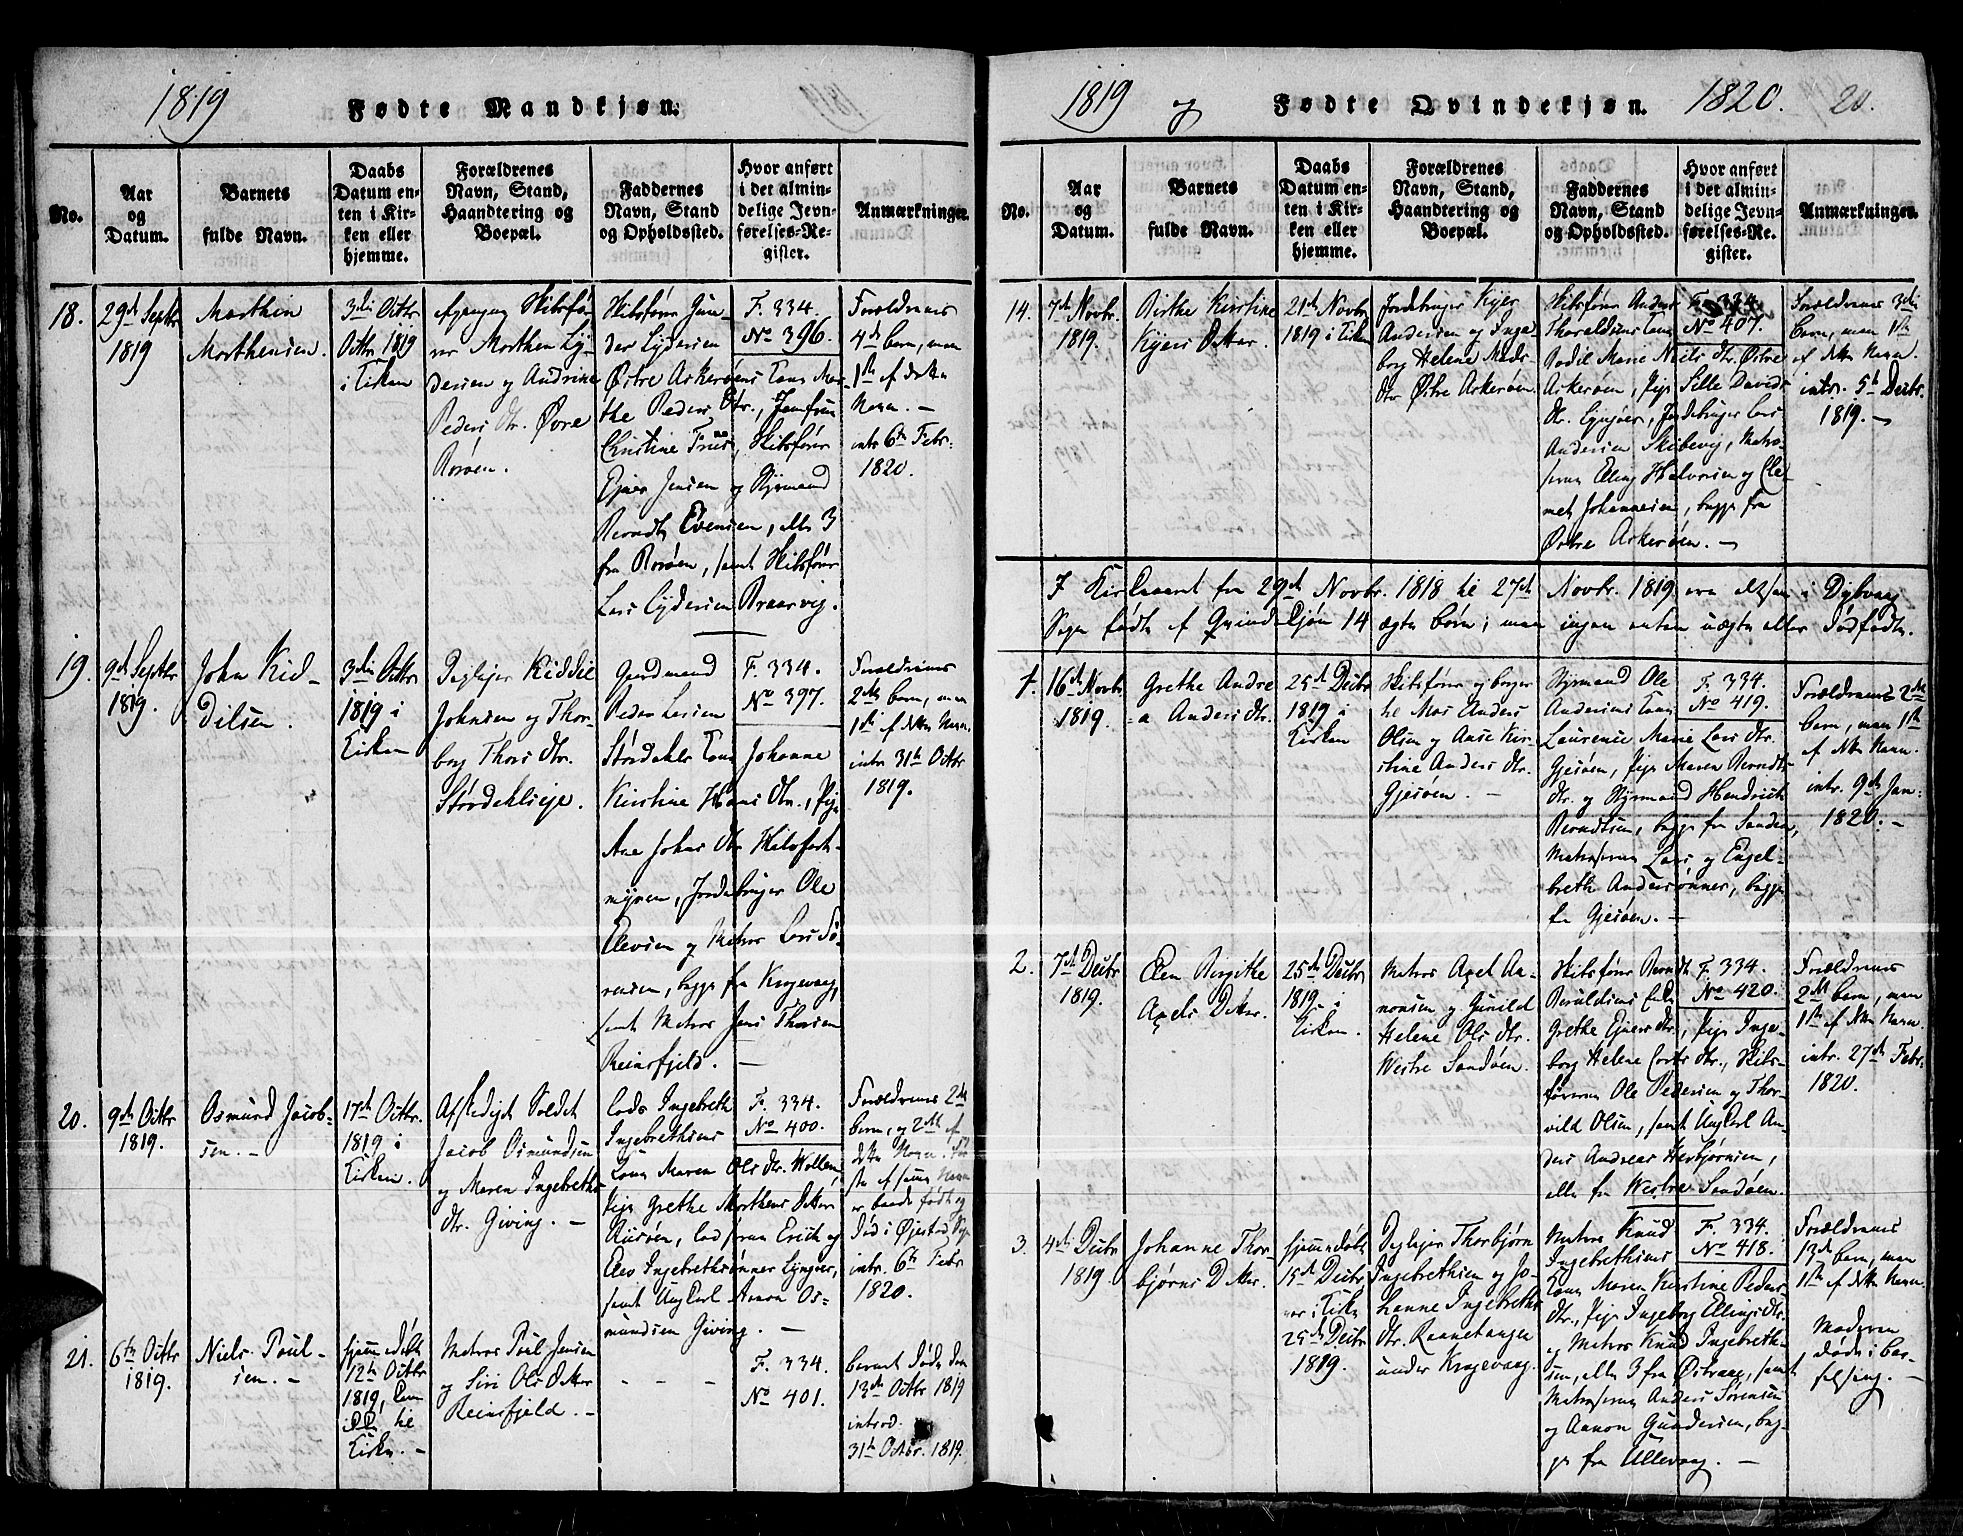 1819
Fødte Mandkjøn.
No.
Aar
og
Datum.
Barnets
fulde Navn.
Daabs
Datum en-
ten i Kir-
ken eller
hjemme.
Forældrenes
Navn, Stand,
Haandtering og
Boepæl.
Faddernes
Navn, Stand
og Opholdssted.
Hvor anført
i det almin-
delige Jevn-
førelses-Re-
gister.
Anmærkninger.
18.
29de Septbr
1819
Morthen
Morthensen.
3die Octbr
Octbr. 1819
i Kirken
Skibsfø-
rer Morthen Ly-
dersen og Andrine
Peders Dtr. Øvre
Borøen.
Skibsfører Gun-
der Lydersen
Østre Askerøens Kone Mar-
the Peders Dtr., Jomfrue
Christine Friis, Skibsfører
Ejner Jensen og Styrmand
Berndt Evensen, alle 3
fra Borøen, samt Skibsfører
Lars Lydersen Braarvig.
F. 334.
No 396.
Forældrenes
4de barn, men
1ste af dette
Navn. —
intr. 6te Febr.
1820.
19.
9de Septbr
1819.
John Kid-
dilsen.
3die Octbr
1819 i
Kirken
Pejlejer Kiddil
Johnsen og Thor-
borg Thors Dtr.
Størdahlseje.
Gaardmand
Peder Larsen
Størdahls Kone Johanne
Kirstine Hans Dtr., Pige
Ane Johns Dtr Skibsfort-
myren, Jordebruger Ole
Elevsen og Matros Lars Sø-
rensen, begge fra Krogevaag,
samt Matros Jens Thorsen
Reinsfjeld. —
F. 334.
No 397.
Forældrenes
2det barn, men
1ste af dette Navn.
intr. 31te Octbr
1819.
20.
9de Octbr
1819.
Osmund Jacob-
sen. —
17de Octbr.
1819 i
Kirken.
Afskediget Soldat
Jacob Osmundsen
og Maren Ingebreths
Dtr. Giving. —
Lods Ingebreth
Ingebrethsens
Kone Maren Ols Dtr. Wollen,
Pige Grethe Morthens Datter
Riisøen, Lodserne Erich og
Elev Ingebrethsønner Lyngøer,
samt Ungkarl Aanon Os-
mundsen Giving. —
F. 334.
No 400.
Forældrenes 2det
barn, og 2det af
dette Navn. Før-
ste af samme Navn
er baade født og
død i Øjestad Sogn
intr. 6te Febr.
1820.
21.
6te Octbr
1819.
Niels Poul-
sen. —
hjemmedøbt
12te Octbr
1819,
til
Kirken. —
Matros Poul Jensen
og Siri Ols Datter
Reinsfjeld. —
- - -
F. 334.
No 401.
barnet døde den
13de Octbr 1819
introd.
31te Octbr. 1819.
1819 og
Fødte Qvindekjøn.
1820.
20.
No.
Aar
og
Datum.
Barnets
fulde Navn.
Daabs
Datum en-
ten i Kir-
ken eller
hjemme.
Forældrenes
Navn, Stand,
Haandtering og
Boepæl.
Faddernes
Navn, Stand
og Opholdssted.
Hvor anført
i det almin-
delige Jevn-
førelses-Re-
gister.
Anmærkninger.
14.
7de Novbr.
1819.
Birthe Kirstine
Kjers Datter.
21de Novbr
1819 i Kirken
Jordebruger Kjer
Andersen og Inge-
borg Helene Mads
Dtr Østre Askerøen.
Skibsfører Anders
Tharaldsens Kone
Bodil Marie Niels Dtr. Østre
Askerøen, Pige Sille Davids
Dtr. Lyngøer, Jordebruger Lars
Andersen Skibevig, Matro-
serne Elling Halvorsen og Cle-
met Johannesen, begge fra
Østre Askerøen. —
F. 334.
No 407.
Forældrenes 3die
barn, men 1ste
af dette Navn.
intr. 5te Decbr.
1819. —
I Kirkeaaret fra 29de Novbr. 1818 til 27de Novbr. 1819 ere altsaa i Dybvaag
Sogn fødte af Qvindekjøn 14 ægte børn; men ingen enten uægte eller dødfødte.
1.
16de Novbr
1819.
Grethe Andre-
a Anders Dtr.
25de Decbr
1819 i
Kirken
Skibsfører og borger
til Mos Anders
Olsen og Anne Kir-
stine Anders Dtr.
Gjesøen. —
Styrmand Ole
Andersens Kone
Laurense Marie Lars Dtr.
Gjesøen, Pige Maren Berndts
Dtr. og Styrmand Hendrich
Berndtsen, begge fra Sandøen,
Matroserne Lars og Engel-
breth Andersønner, begge
fra Gjesøen. —
F. 334.
No 419.
Forældrenes 2det
barn, men 1ste
af dette Navn.
intr. 9de Jan.
1820. —
2.
7de Decbr
1819.
Elen Birgithe
Axels Datter.
25de Decbr
1819 i
Kirken.
Matros Axel Aa-
nonsen og Gunild
Helene Ols Dtr.
Westre Sandøen.
Skibsfører Berndt
Grethe Ejners Dtr., Pige Inge-
borg Helene Corts Dtr., Skibs-
førerne Ole Pedersen og Thor-
vild Olsen, samt Ungkarl An-
ders Andreas Herbjørnsen,
alle fra Westre Sandøen.
F. 334.
No 420.
Forældrenes
2det barn, men
1ste af dette Navn.
intr. 27de Febr.
1820.
3.
4de Decbr
1819
Johanne Thor-
bjørns Datter.
hjemmedøbt
15de Decbr
var i Kirken
25de Decbr
1819.
Pejlejer Thorbjørn
Ingebrethsen og Jo-
hanne Ingebreths
Dtr. Rannetangen
under Krogevaag.
Matros Knud
Ingebrethsens
Kone Maren Kirstine Peders
Dtr., Pige Ingeborg Ellings Dtr.
og Matros Knud Ingebreth-
sen, alle 3 fra Østvaag, samt
Matroserne Anders Sørensen
og Aanon Gundersen, beg-
ge fra Ullevaag. —
F. 334.
No 418.
Forældrenes
13de barn, men
1ste af dette Navn.
Moderen
døde i bar-
selseng. —